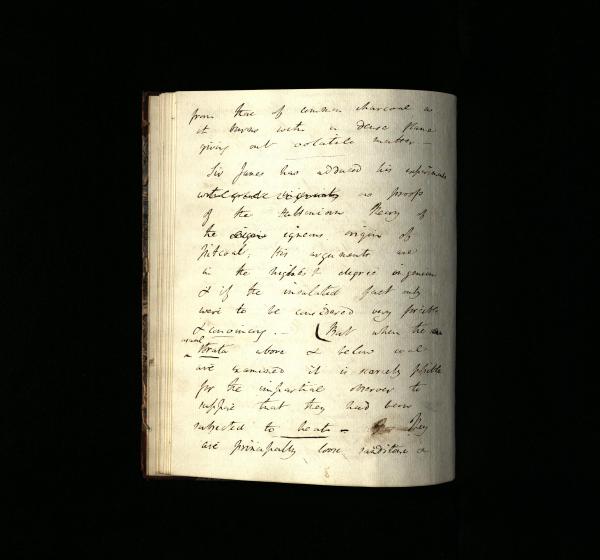 from that of common charcoal as
it burns with a dense flame
giving out volatile matter –
Sir James has adduced his experiments
as proofs
of the Huttonian theory of
the igneous origin of
Pitcoal; His arguments are
in the highest degree ingenious
& if the insulated fact only
were to be considered very
& convincing. – (But when the
usual
strata above & below coal
are examined it is scarcely possible
for the impartial observer to
suppose that they had been
subjected to heat – They
are principally loose sandstone or